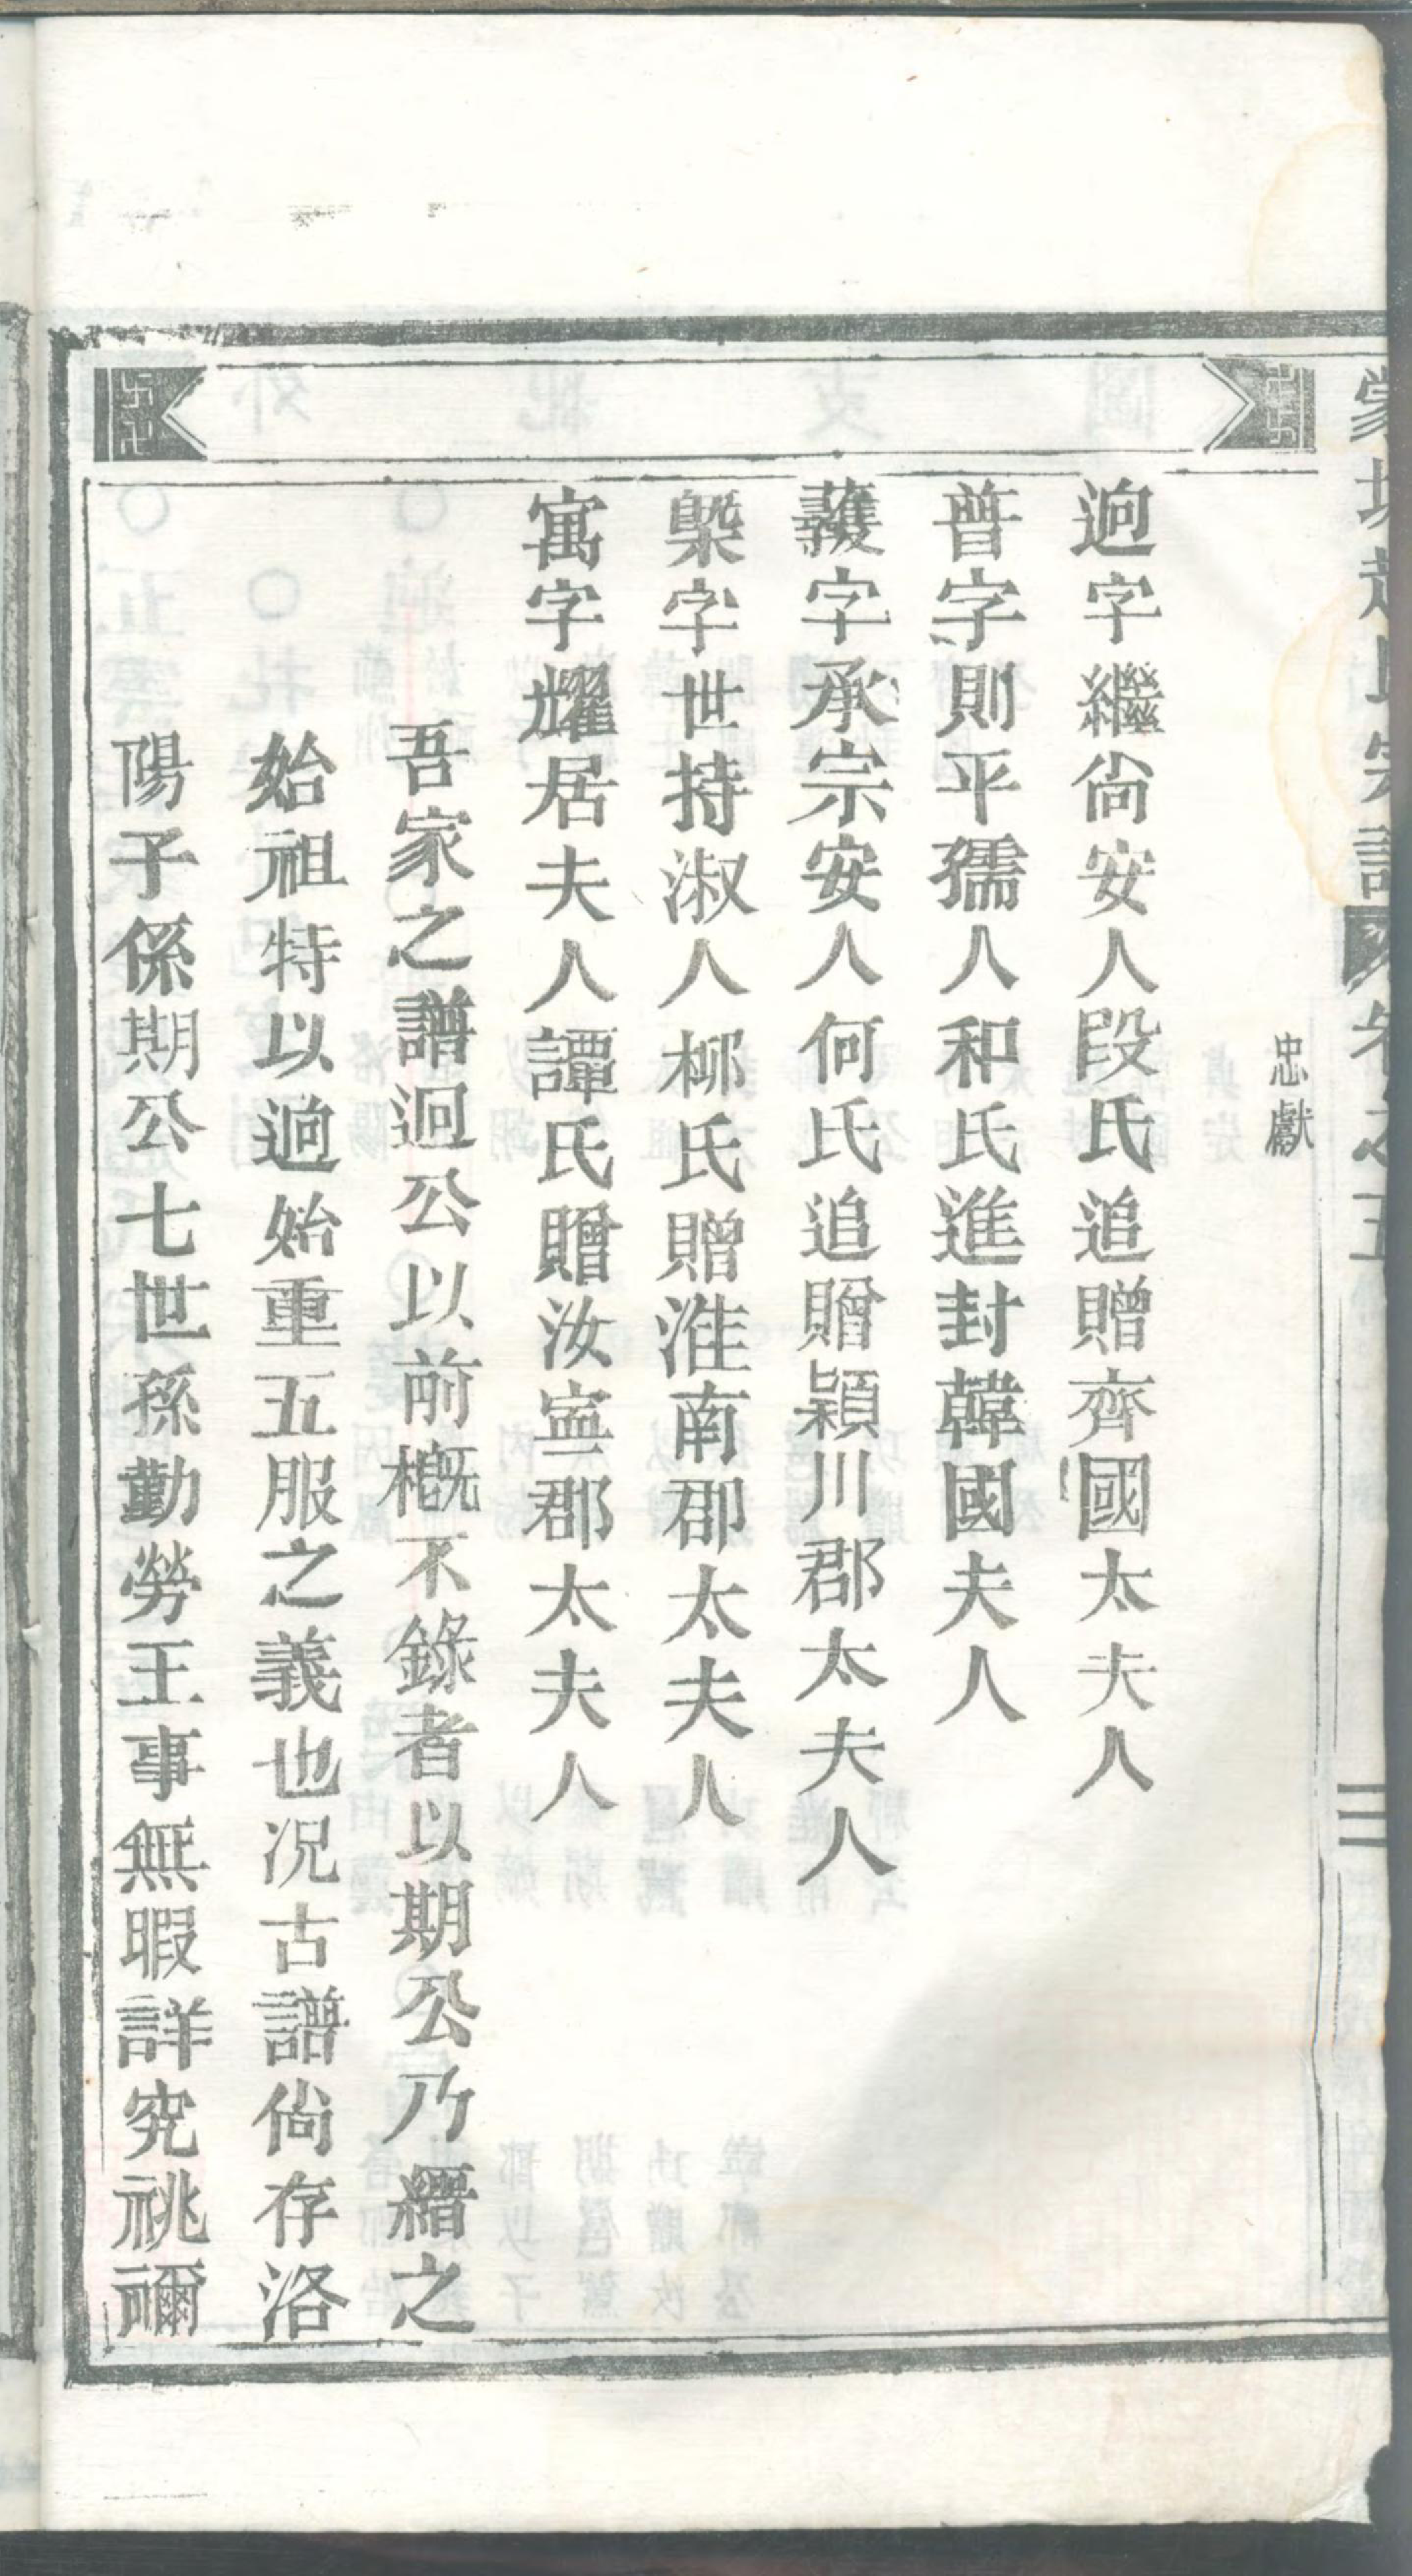 忠獻
逈字繼尙安人段氏追贈齊國太夫人
普字則平孺人和氏進封韓國夫人
承宗安人何氏追贈潁川郡太夫人
槼字世持淑人栁氏贈淮南郡太夫人
寓字耀居夫人譚氏贈汝寧郡太夫人
吾家之譜迥公以前槪不錄者以期公乃縉之
始祖特以逈始重五服之義也况古譜尙存洛
陽子係期公七世孫勤勞王事無暇詳究祧禰